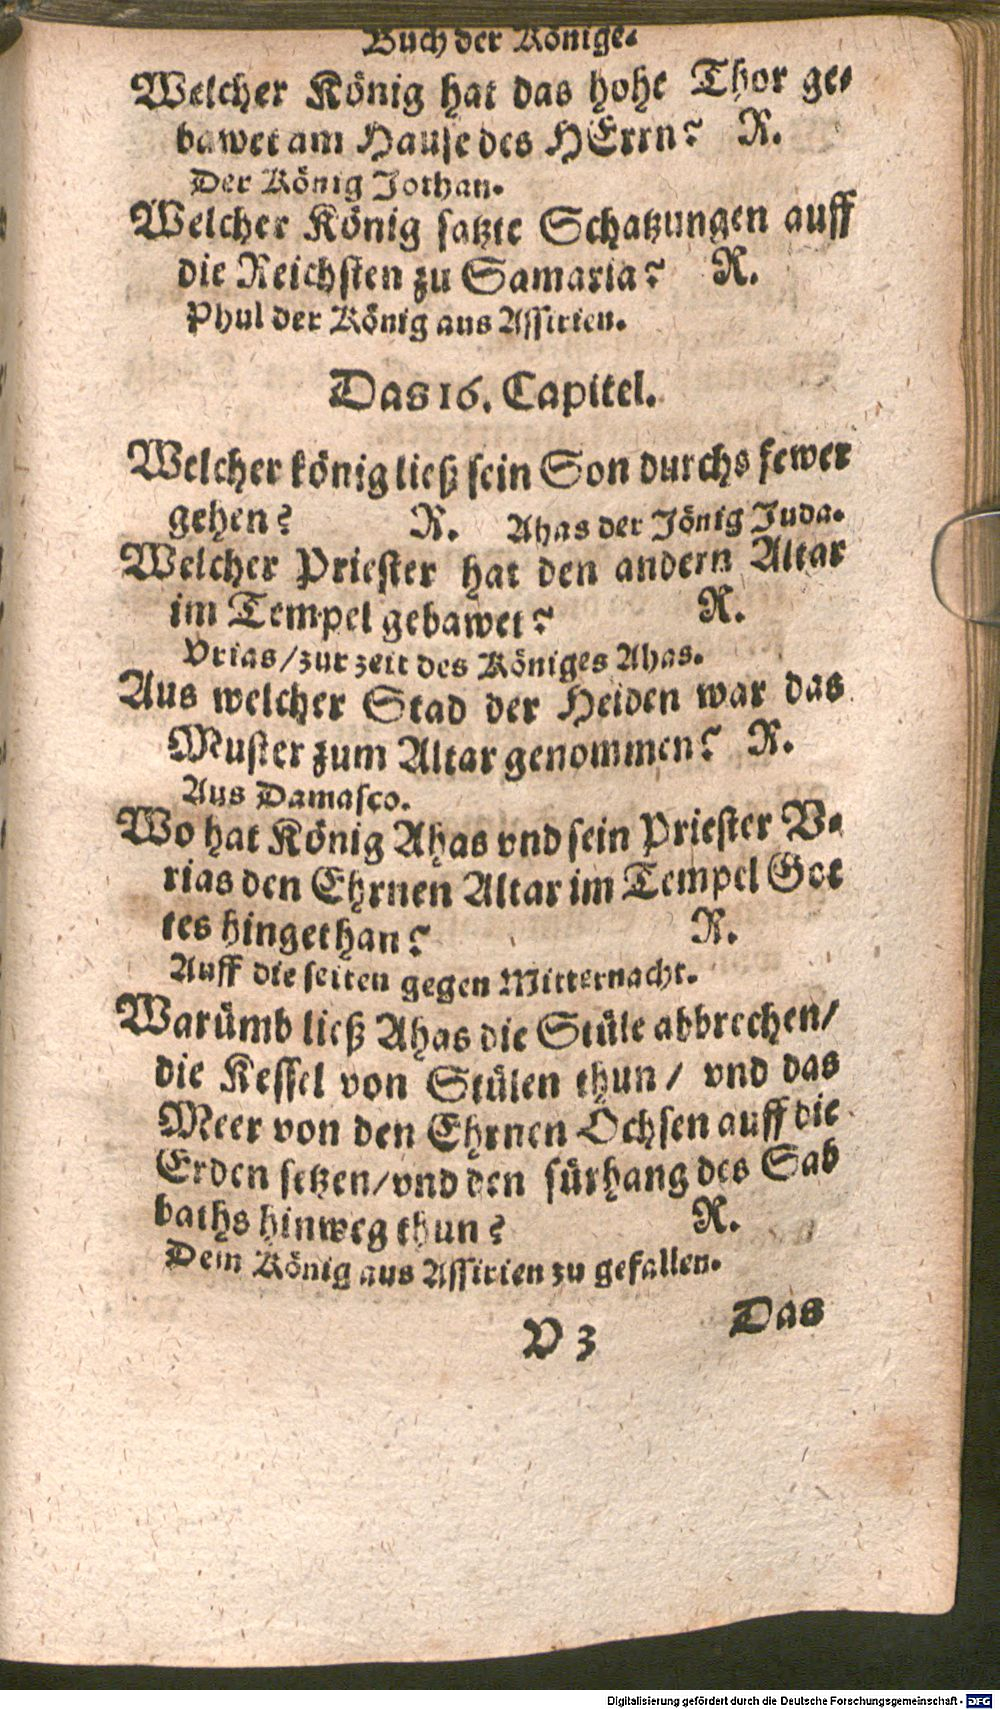 Buch der Könige.
Welcher König hat das hohe Thor ge-
bawet am Hause des HErrn? R.
Der König Jothan.
Welcher König satzte Schatzungen auff
die Reichsten zu Samaria? R.
Phul der König aus Assirien.
Das 16. Capitel.
Welcher könig ließ sein Son durchs fewer
gehen? R. Ahas der Jönig Juda.
Welcher Priester hat den andern Altar
im Tempel gebawet? R.
Vrias/zur zeit des Königes Ahas.
Aus welcher Stad der Heiden war das
Muster zum Altar genommen? R.
Aus Damasco.
Wo hat König Ahas vnd sein Priester V-
rias den Ehrnen Altar im Tempel Got
tes hingethan? R.
Auff die seiten gegen Mitternacht.
Warümb ließ Ahas die Stüle abbrechen/
die Kessel von Stülen thun/ vnd das
Meer von den Ehrnen Ochsen auff die
Erden setzen/vnd den fürhang des Sab
baths hinweg thun? R.
Dem König aus Assirien zu gefallen.
V 3 Das
Digitalisierung gefördert durch die Deutsche Forschungsgemeinschaft - DFG